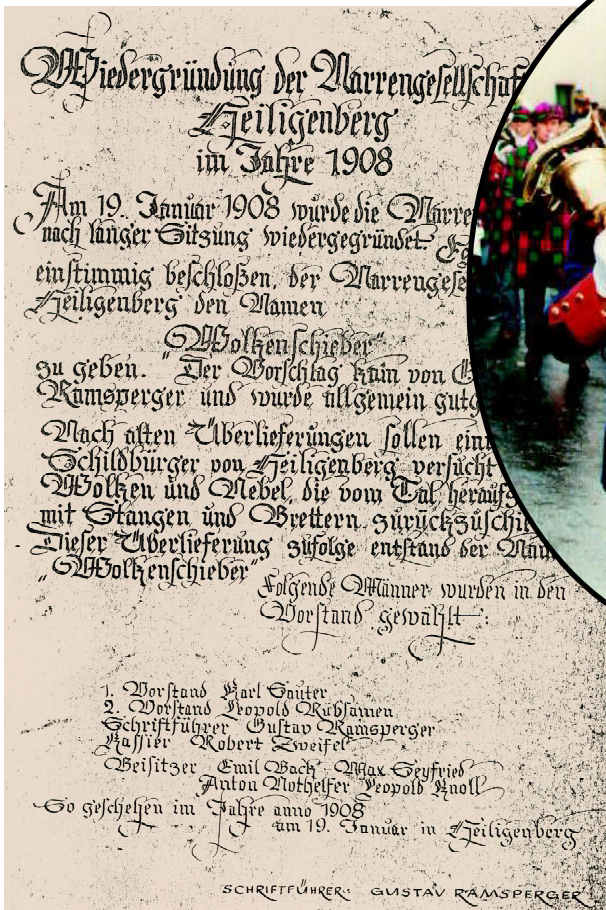 Wiedergründung der Narrengesellschaf
Heiligenberg
im Jahre 1908
Am 19. Januar 1908 wurde die Narre
nach langer Sitzung wiedergegründet.
einstimmig beschloßen, der Narrengese
Heiligenberg den Namen
„Wolkenschieber“
zu geben. Der Vorschlag kam von G
Ramsperger und wurde allgemein gutg
Nach alten Überlieferungen sollen eini
Schildbürger von Heiligenberg versucht
Wolken und Nebel, die vom Tal herauf
mit Stangen und Brettern zurückzuschi
Dieser Überlieferung zufolge entstand der Nam
„Wolkenschieber“
Folgende Männer wurden in den
Vorstand gewählt :
1. Vorstand Karl Sauter
2. Vorstand Leopold Rübsamen
Schriftführer Gustav Ramsperger
Kassier Robert Zweifel
Beisitzer Emil Back Max Seyfried
Anton Nothelfer Leopold Knoll
So geschehen im Jahre anno 1908
am 19. Januar in Heiligenberg
SCHRIFTFÜHRER: GUSTAV RAMSPERGER